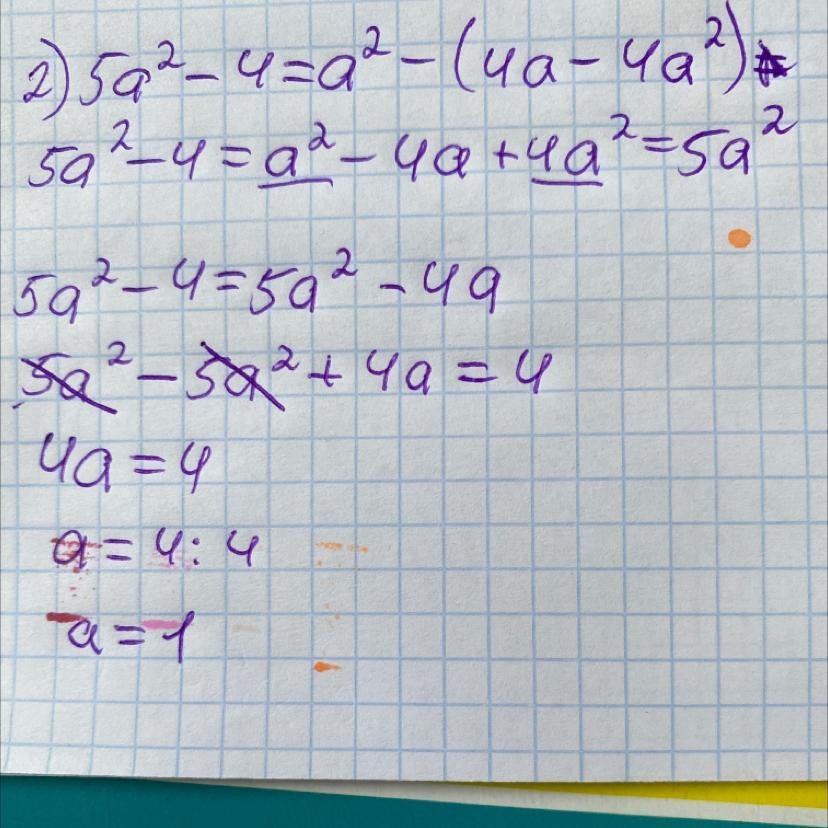 2) 5a² - 4 = a² - (4a - 4a²)
5a² - 4 = a² - 4a + 4a² = 5a²
5a² - 4 = 5a² - 4a
5a² - 5a² + 4a = 4
4a = 4
a = 4 : 4
a = 1